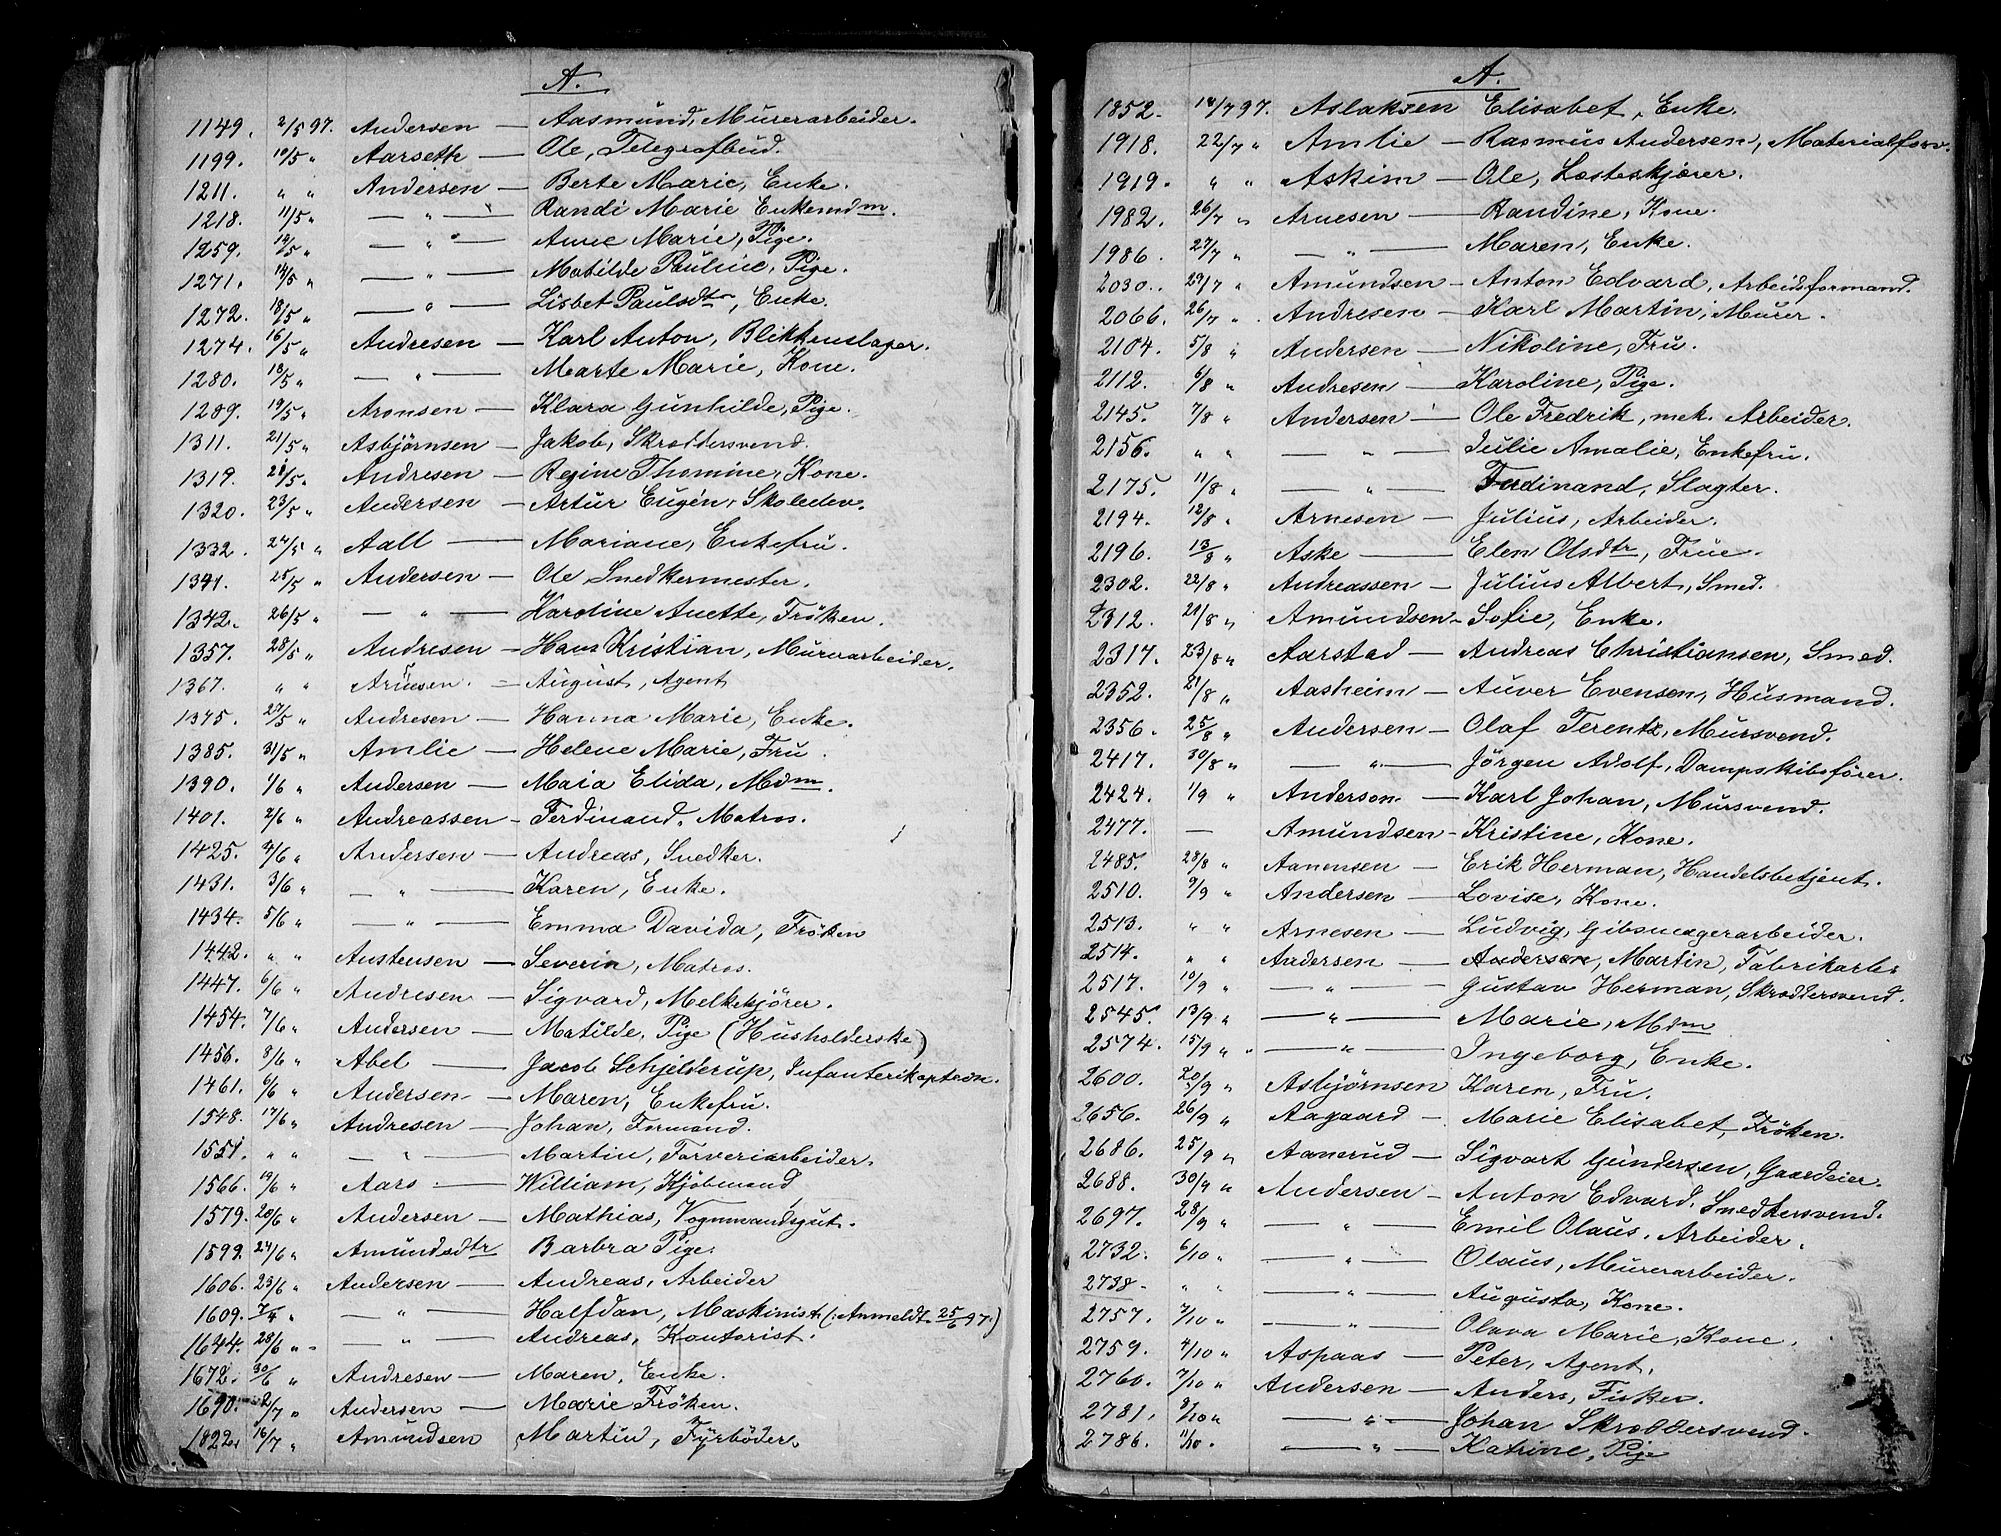 A.
1149. 2/5 97. Andersen — Aasmund, Murerarbeider.
1199. 10/5 " Aarseth — Ole, Telegrafbud.
1211. " " Andersen — Berte Marie, Enke.
1218. 11/5 " — " — Randi Marie Enkemdm.
1259. 14/5 " — " — Anne Marie, Pige.
1271. 14/5 " — " — Matilde Pauline, Pige.
1272. 18/5 " — " — Lisbet Paulsdtr, Enke.
1274. 16/5 " Andresen — Karl Anton, Blikkenslager.
1280. 18/5 " — " — Marte Marie, Kone.
1289. 19/5 " Aronsen — Klara Gunhilde, Pige.
1311. 21/5 " Asbjørnsen — Jakob, Skræddersvend.
1319. 21/5 " Andresen — Regine Thomine, Kone.
1320. 23/5 " Andersen — Artur Eugén, Skoleelev.
1332. 24/5 " Aall — Mariane, Enkefru.
1341. 25/5 " Andersen — Ole Snedkermester.
1342. 26/5 " — " — Karoline Anette, Frøken.
1357. 28/5 " Andresen — Hans Kristian, Murerarbeider.
1367. " " Arnesen. = August, Agent
1375. 27/5 " Andresen — Hanna Marie, Enke.
1385. 31/5 " Amlie — Helene Marie, Fru.
1390. 1/6 " Andersen — Maia Elida, Mdm.
1401. 2/6 " Andreassen — Ferdinand, Matros.
1425. 4/6 " Andersen — Andreas, Snedker.
1431. 3/6 " — " — Karen, Enke.
1434. 5/6 " — " — Emma Davida, Frøken
1442. " " Austensen — Severin, Matros.
1447. 6/6 " Andresen — Sigvard, Melkekjører.
1454. 7/6 " Andersen — Matilde, Pige (Husholderske)
1456. 8/6 " Abel — Jacob Schjelderup, Infanterikaptein.
1461. 6/6 " Andersen — Maren, Enkefru.
1548. 17/6 " Andresen — Johan, Formand.
1551. " " — " — Martin, Farveriarbeider.
1566. 19/6 " Aars — William, Kjøbmand
1579. 20/6 " Andersen — Mathias, Vognmandsgut.
1599. 24/6 " Amundsdtr Barbra Pige.
1606. 23/6 " Andersen — Andreas, Arbeider
1609. " — " — Halfdan, Maskinist (: Anmeldt 25/6 97:)
1644. 28/6 " — " — Andreas, Kontorist.
1672. 30/6 " Andresen — Maren, Enke.
1690. 2/7 " Andersen — Marie Frøken.
1822. 16/7 " Amundsen Martin, Fyrbøder.
A.
1852. 18/7 97. Aslaksen Elisabet, Enke.
1918. 22/7 " Amlie — Rasmus Andersen, Materialforv.
1919. " " Askim — Ole, Læsteskjører.
1982. 26/7 " Arnesen — Randine, Kone.
1986. 27/7 " — " — Maren, Enke.
2030. 29/7 " Amundsen — Anton Edvard, Arbeidsformand.
2066. 26/7 " Andresen — Karl Martin, Murer.
2104. 5/8 " Andersen — Nikoline, Fru.
2112. 6/8 " Andresen — Karoline, Pige.
2145. 7/8 " Andersen — Ole Fredrik, mek. Arbeider.
2156. " " — " — Julie Amalie, Enkefru.
2175. 11/8 " — " — Ferdinand, Slagter.
2194. 12/8 " Arnesen — Julius, Arbeider.
2196. 13/8 " Aske — Elen Olsdtr, Frue.
2302. 22/8 " Andreassen — Julius Albert, Smed.
2312. 21/8 " Amundsen — Sofie, Enke.
2317. 23/8 " Aarstad — Andreas Christiansen, Smed.
2352. 21/8 " Aasheim — Auver Evensen, Husmand.
2356. 25/8 " Andersen — Olaf Terentz, Mursvend.
2417. 30/8 " — " — Jørgen Adolf, Dampskibsfører.
2424. 1/9 " Anderson — Karl Johan, Mursvend.
2477. — Amundsen — Kristine, Kone.
2485. 28/8 " Aanensen — Erik Herman, Handelsbetjent.
2510. 9/9 " Andersen — Lovise, Kone.
2513. " " Arnesen — Ludvig, Gibsmagerarbeider.
2514. " " Andersen — Andersen, Martin, Fabrikarb.
2517. 10/9 " — " — Gustav Herman, Skræddersvend.
2545. 13/9 " — " — Marie, Mdm
2574. 15/9 " — " — Ingeborg, Enke.
2600. 20/9 " Asbjørnsen Karen, Fru.
2656. 26/9 " Aagaard — Marie Elisabet, Frøken.
2686. 25/9 " Aanerud — Sigvart Gundersen, Gaardeier.
2688. 30/9 " Andersen — Anton Edvard, Snedkersvend.
2697. 28/9 " — " — Emil Olaus, Arbeider.
2732. 6/10 " — " — Olaus, Murerarbeider.
2738. " " — " — Augusta, Kone.
2757. 7/10 " — " — Olava Marie, Kone.
2759. 4/10 " Aspaas — Peter, Agent.
2760. 7/10 " Andersen — Anders, Fisker.
2781. 8/10 " — " — Johan Skræddersvend.
2786. 11/10. — " — Katrine, Pige